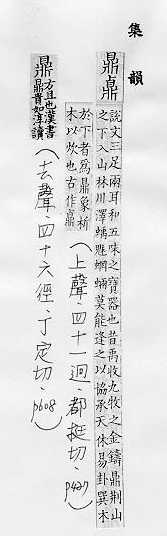 集韻
鼎鼑
說文三足兩耳和五味之寶器也昔禹收九牧之金鑄鼎荊山
之下入山林川澤螭魅蝄蜽莫能逢之以協承天休易卦巽木
於下者為鼎象析
木以炊也古作鼑
(上聲、四十一迥、都挺切、p427)
鼎
方且也漢書
鼎貴如淳讀
(去聲、四十六徑、丁定切、p608)